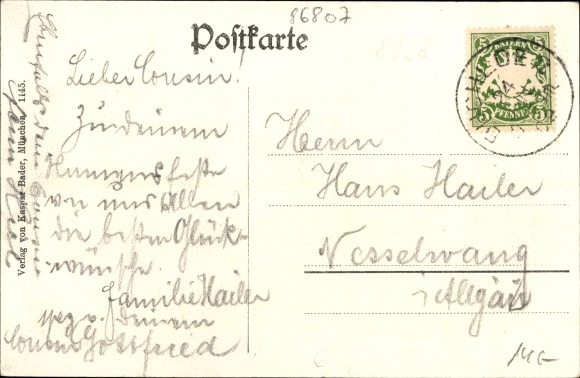 86807
Postkarte
BAYERN
5 5
5 5
PFENNIG
Lieber Cousin!
Zu Deinem
Namensfeste
von uns Allen
die besten Glück-
wünsche.
Familie Hailer
Deinem
Cousin Gottfried
Ebenfalls
Herrn
Hans Hailer
Nesselwang
i/Allgäu
Verlag von Kaspar Bader, München. 1145.